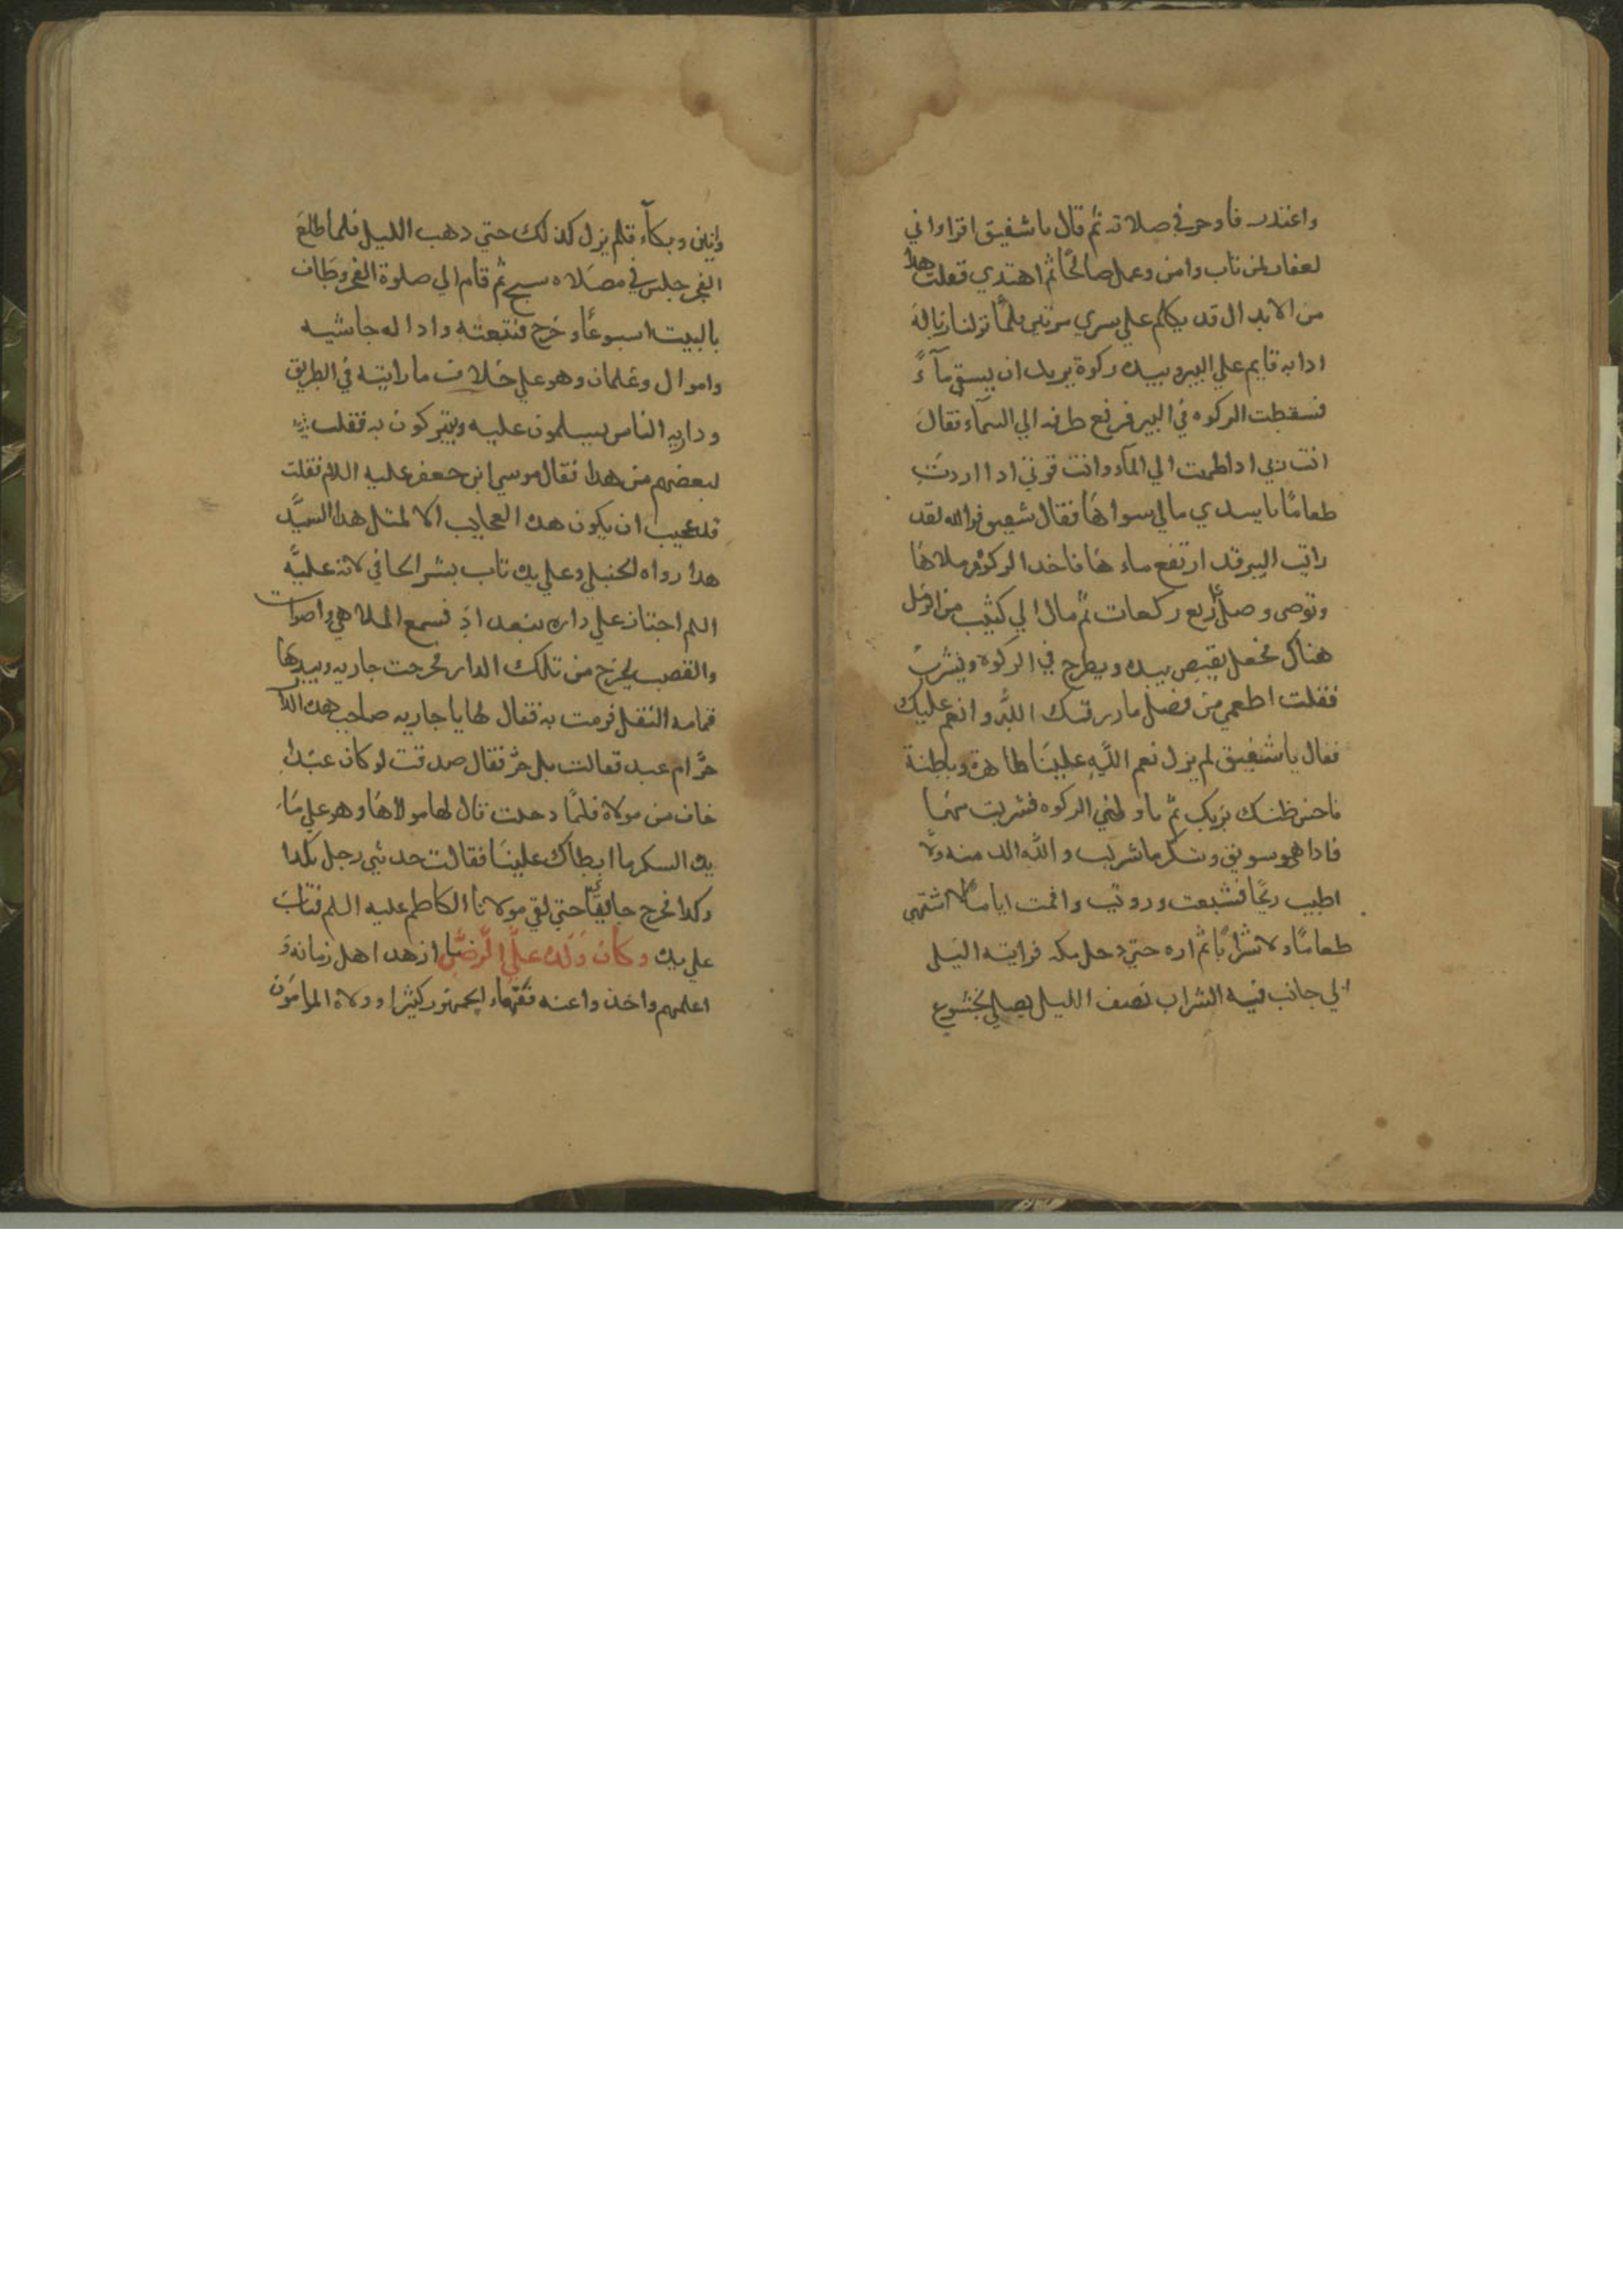 واعتذر فاوجز في صلاته ثم قال يا شقيق اقرا واني
لغفار لمن تاب وامن وعمل صالحًا ثم اهتدي فقلت هذا
من الابدال قد يكلم علي سري مرتين فلمَّا نزلنا زبالة
اذا به قايم علي البير وبيده ركوة يريد ان يستقي مآءً
فسقطت الركوه في البير فرفع طرفه الي السمآء فقال
انت ربي اذا ظمئت الي المآء وانت قوتي اذا اردت
طعامًا يا سيدي مالي سواها فقال شقيق فوالله لقد
رايت البير قد ارتفع ماءها فاخذ الركوة وملاها
وتوضى وصلى اربع ركعات ثم مال الي كثيب من الرمل
هناك فجعل يقبض بيده ويطرح في الركوه ويشرب
فقلت اطعمني من فضل ما رزقك اللّه وانعم عليك
فقال يا شقيق لم يزل نعم اللّه علينا ظاهرة وباطنة
فاحسن ظنك بربك ثم ناولني الركوه فشربت منها
فاذا هو سويق وسكر ما شربت واللّه الذ منه ولا
اطيب ريحًا فشبعت ورويت واقمت ايامًا لا اشتهي
طعامًا ولا شرابًا ثم لم اره حتي دخل مكه فرايته اليلى
الي جانب قبه الشراب نصف الليل يصلي بخشوع
وانين وبكآء فلم يزل كذلك حتي ذهب الليل فلما طلع
الفجر جلس في مصلاه سبح ثم قام الي صلوة الفجر وطاف
بالبيت اسبوعًا وخرج فتبعته واذا له حاشيه
واموال وغلمان وهو علي خلاف ما رايته في الطريق
وداربه الناس يسلمون عليه ويتبركون به فقلت
لبعضهم من هذا فقال موسى ابن جعفر عليه اللام فقلت
قد عجبت ان يكون هذه العجايب الا لمثل هذا السيَّد
هذا رواه الحنبلي وعلي يده تاب بشر الحافي لانه عليَّه
اللم اجتاز علي داره ببغداذ فسمع الملاهي واصوات
والقصب يخرج من تلك الدار فخرجت جاريه وبيدها
قمامه النقل فرمت به فقال لها يا جاريه صاحب هذه الدا
حُرّ ام عبد فقالت بل حرّ فقال صدقت لو كان عبدًا
خاف من مولاه فلمَّا دخلت قال لها مولاها وهو علي مَا
يده السكر ما ابطاك علينا فقالت حدثني رجل بكذا
وكذا فخرج حافيًا حتي لقي مولانا الكاظم عليه اللم فتاب
علي يده وكان وَلَده علي الرّضّا ازهد اهل زمانه وَ
اعلمهم واخذ واعنه فقهاء الجمهور كثيرا وولاه المامون